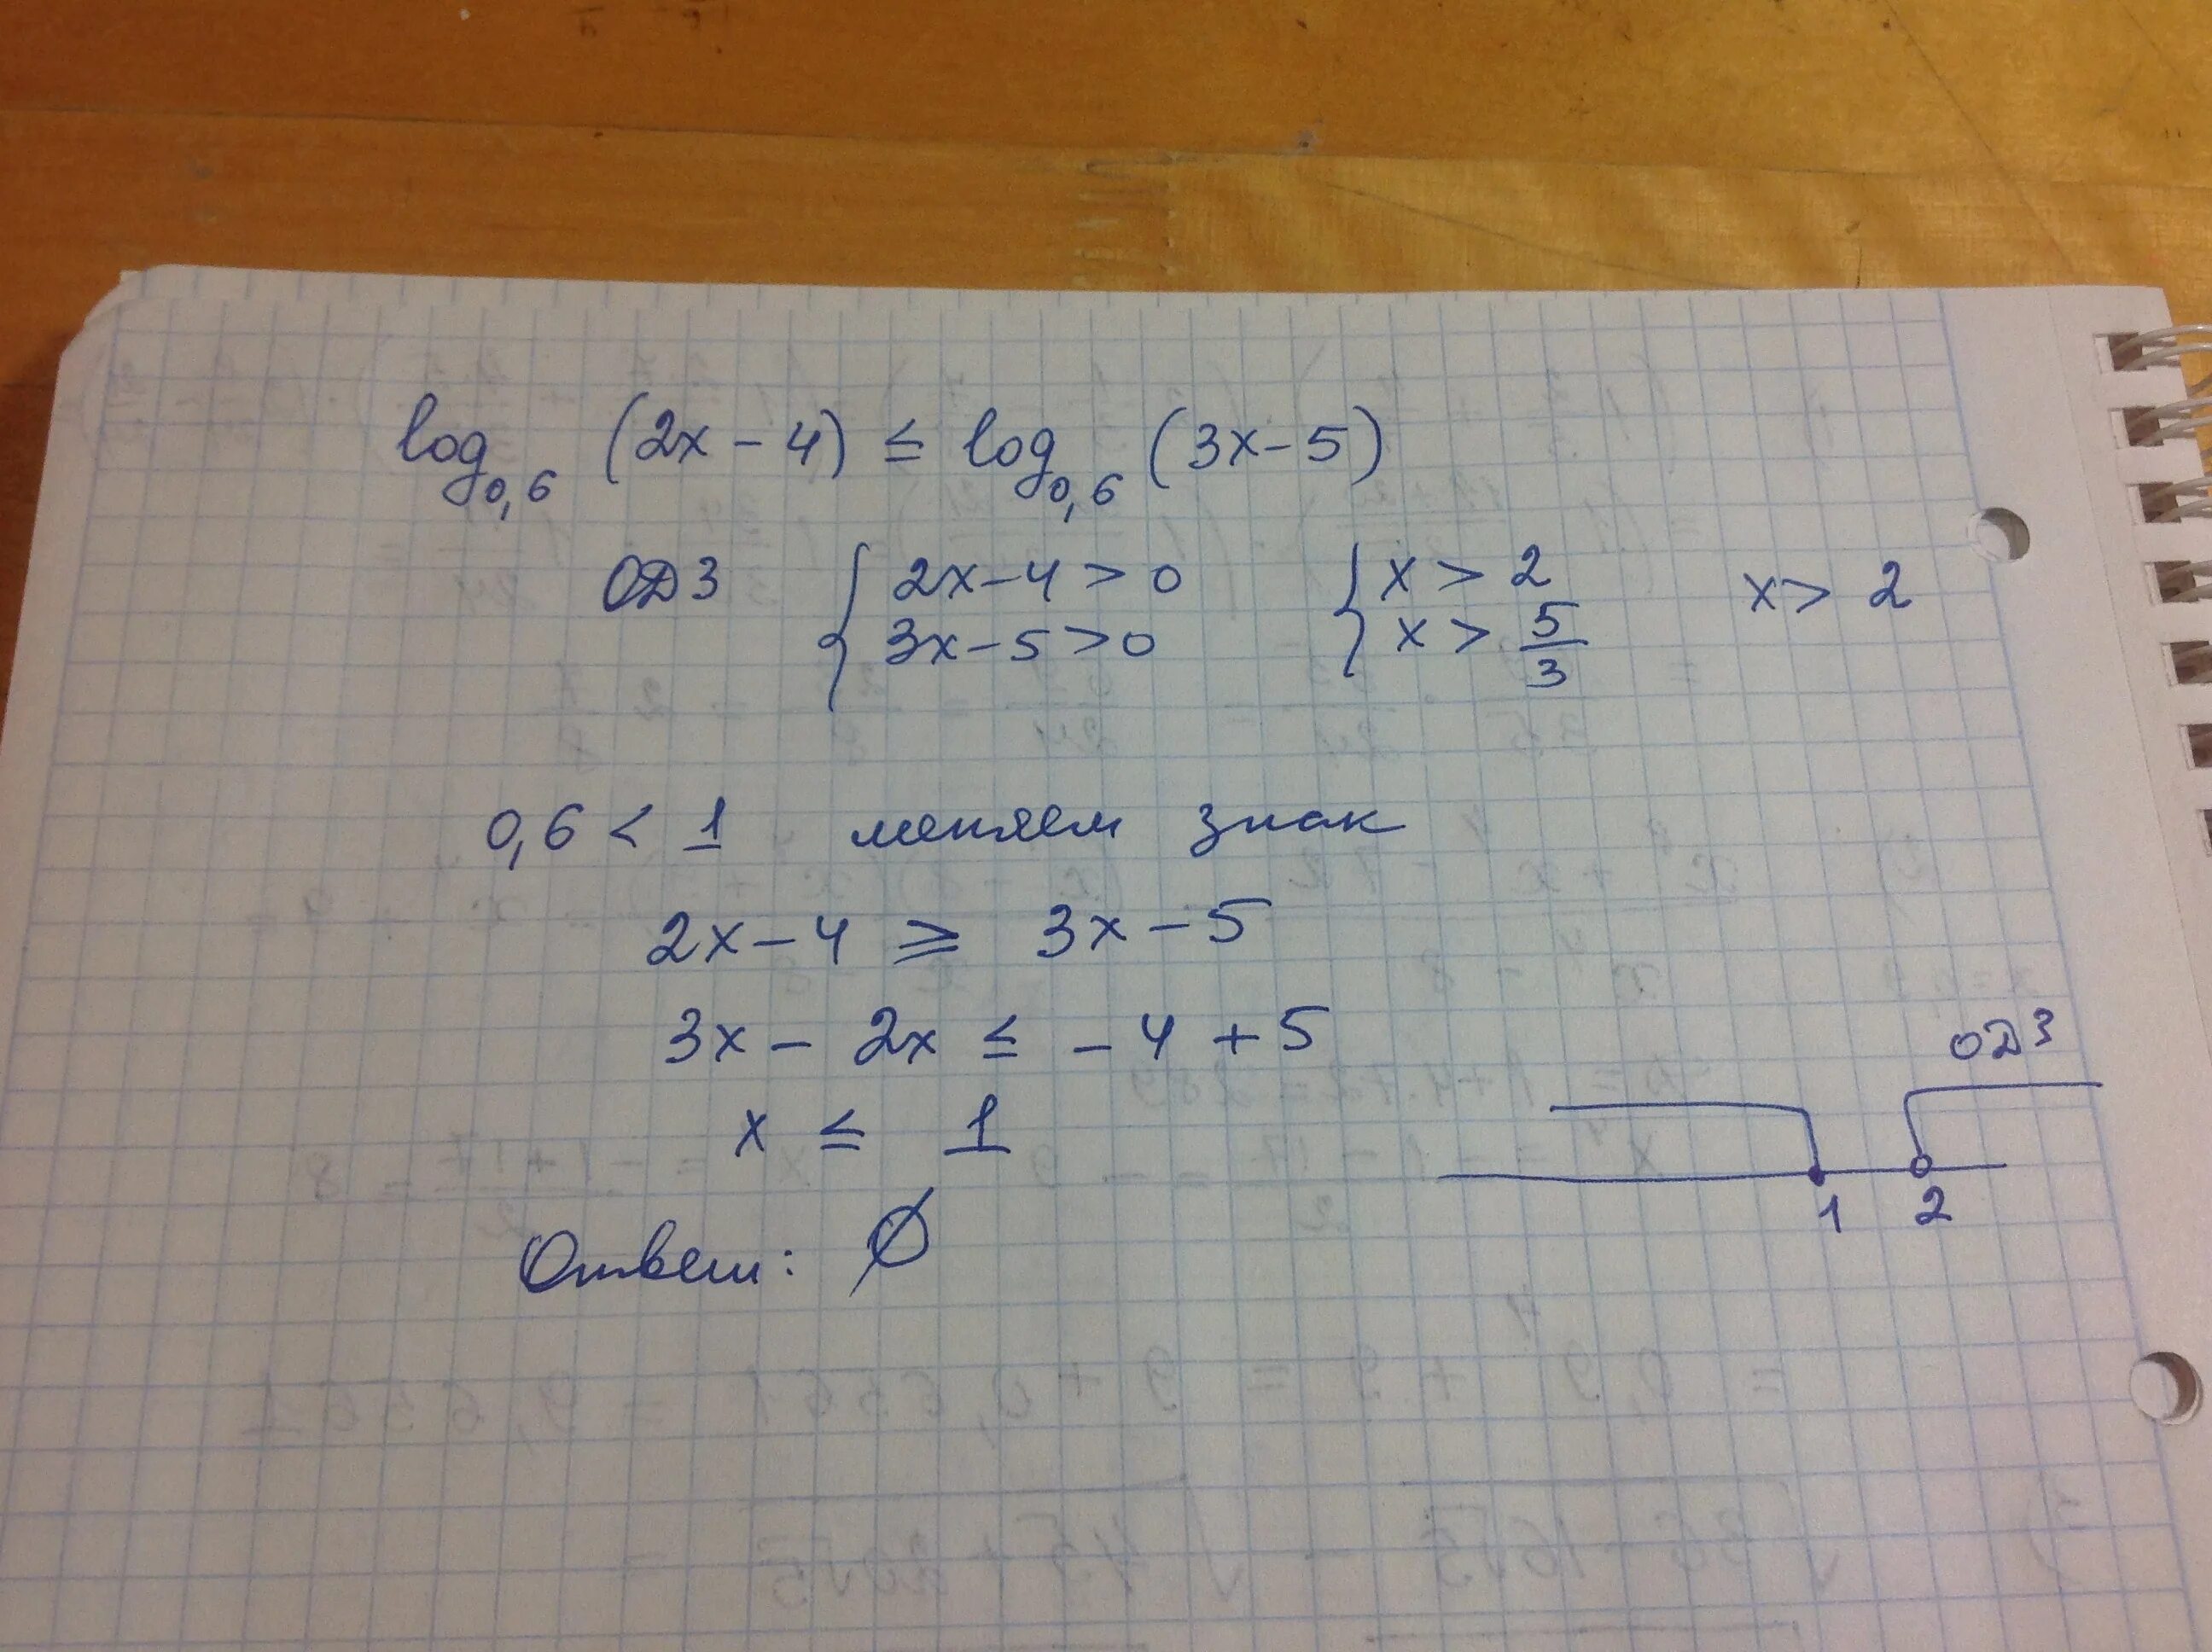 log₀,₆ (2x - 4) ≤ log₀,₆ (3x - 5)
ОДЗ { 2x - 4 > 0 { x > 2 x > 2
3x - 5 > 0 x > 5/3
0,6 < 1 меняем знак
2x - 4 ≥ 3x - 5
3x - 2x ≤ -4 + 5
x ≤ 1
ОДЗ
1 2
Ответ: ∅